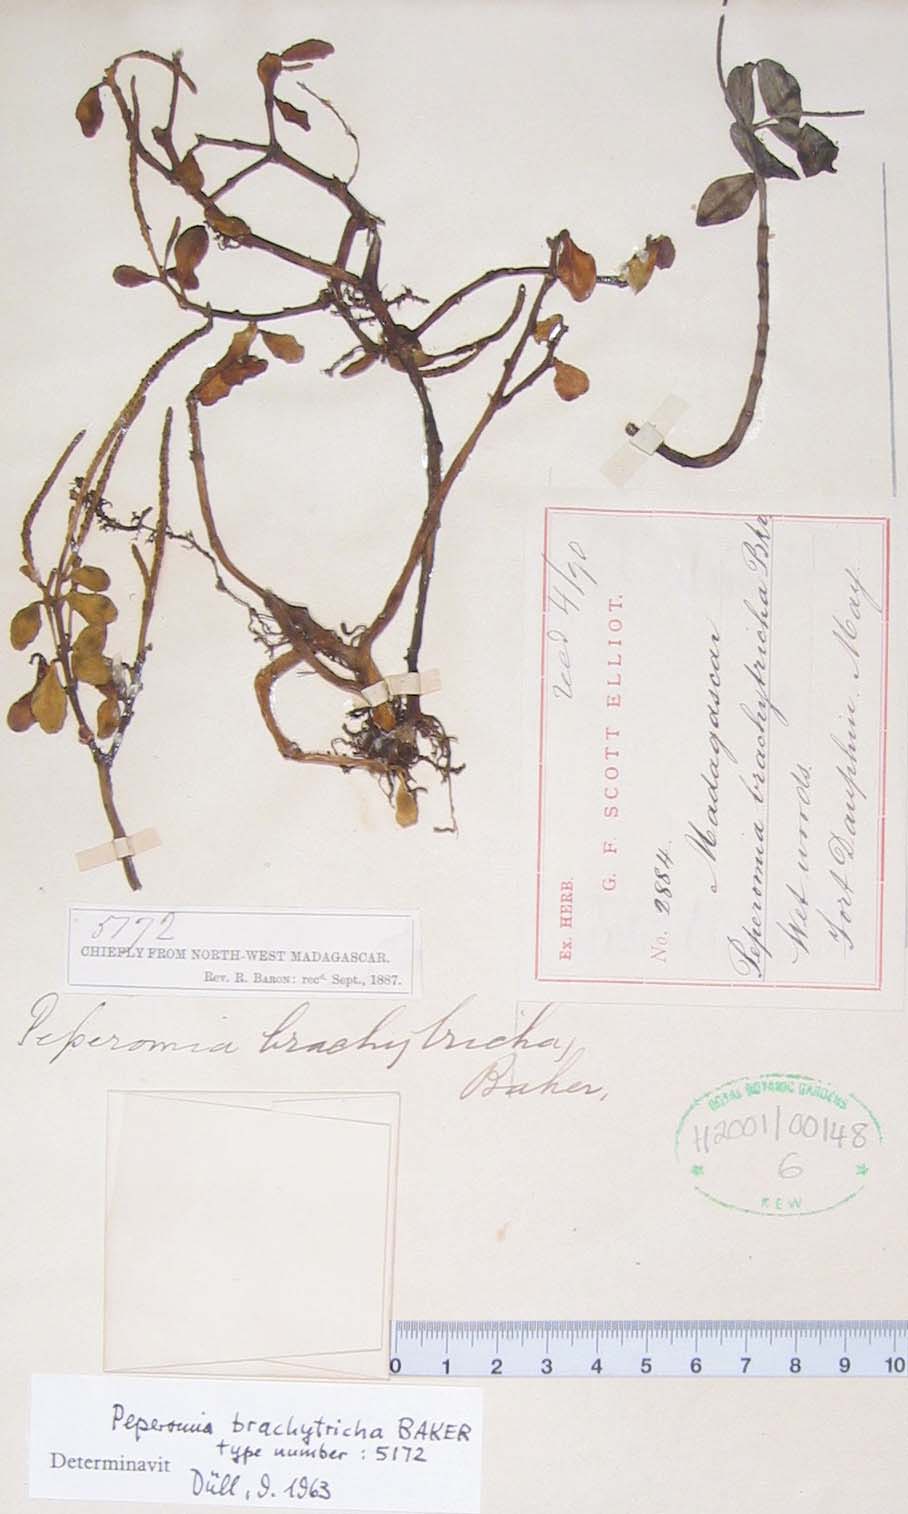 recd 4/90
Ex. HERB.
G. F. SCOTT ELLIOT.
No. 2884.
Madagascar
Peperomia brachytricha Bkr
Wet woods.
Fort Dauphin. May.
5172
CHIEFLY FROM NORTH-WEST MADAGASCAR.
Rev. R. Baron: recd. Sept., 1887.
Peperomia brachytricha,
Baker,
ROYAL BOTANIC GARDENS
H2001/00148
6
KEW
0 1 2 3 4 5 6 7 8 9 10
Peperomia brachytricha BAKER
type number: 5172
Determinavit
Düll, D. 1963